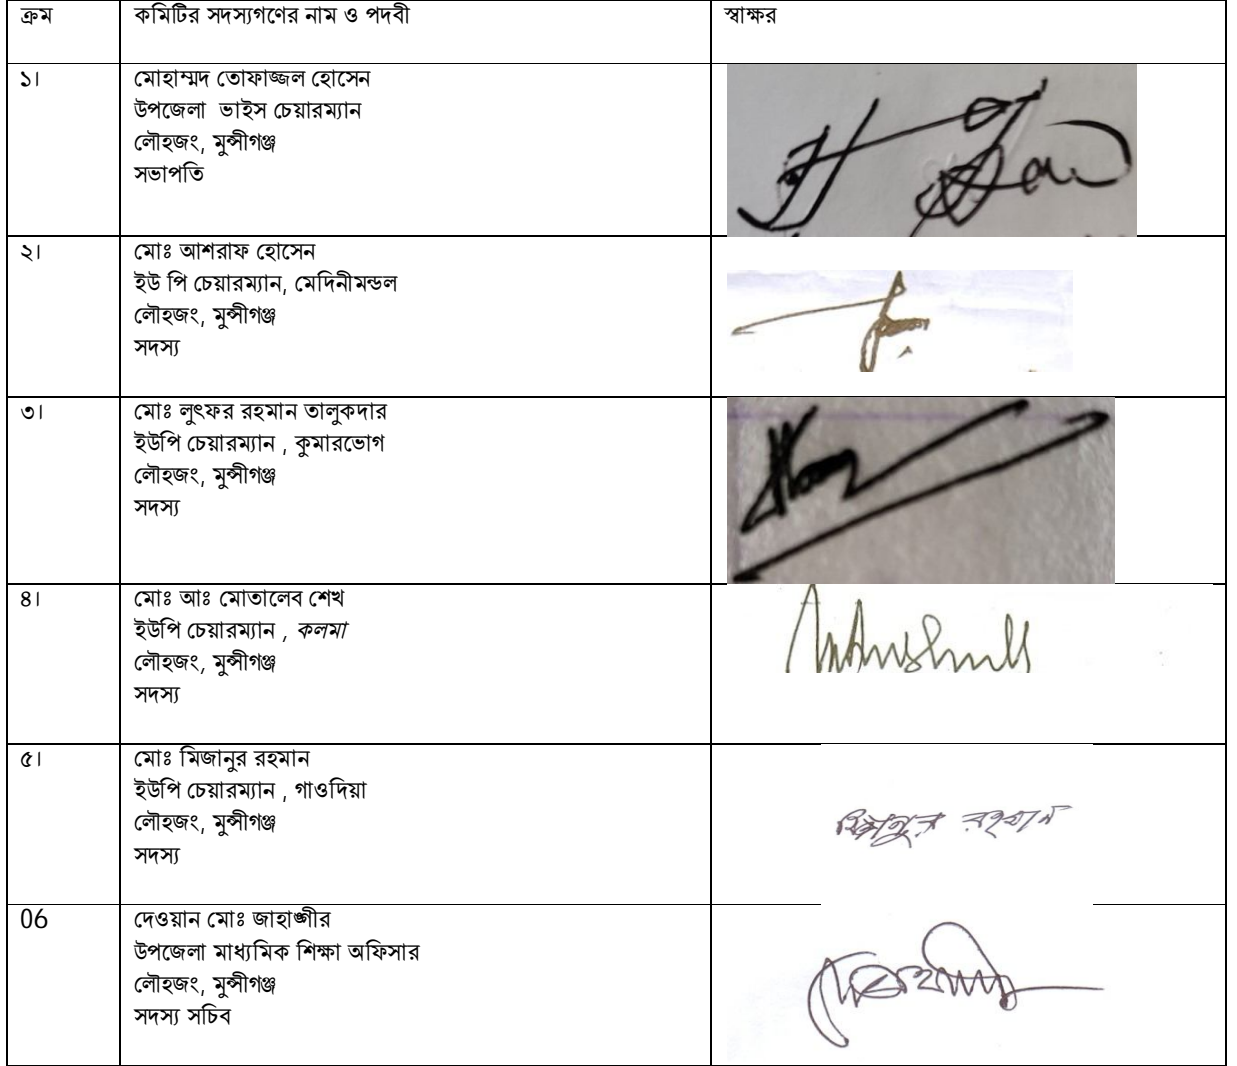 ক্রম কমিটির সদস্যগণের নাম ও পদবী স্বাক্ষর
১। মোহাম্মদ তোফাজ্জল হোসেন
উপজেলা ভাইস চেয়ারম্যান
লৌহজং, মুন্সীগঞ্জ
সভাপতি
২। মোঃ আশরাফ হোসেন
ইউ পি চেয়ারম্যান, মেদিনীমন্ডল
লৌহজং, মুন্সীগঞ্জ
সদস্য
৩। মোঃ লুৎফর রহমান তালুকদার
ইউপি চেয়ারম্যান , কুমারভোগ
লৌহজং, মুন্সীগঞ্জ
সদস্য
৪। মোঃ আঃ মোতালেব শেখ
ইউপি চেয়ারম্যান , কলমা
লৌহজং, মুন্সীগঞ্জ
সদস্য
৫। মোঃ মিজানুর রহমান
ইউপি চেয়ারম্যান , গাওদিয়া
লৌহজং, মুন্সীগঞ্জ
সদস্য
মিজানুর রহমান
06 দেওয়ান মোঃ জাহাঙ্গীর
উপজেলা মাধ্যমিক শিক্ষা অফিসার
লৌহজং, মুন্সীগঞ্জ
সদস্য সচিব